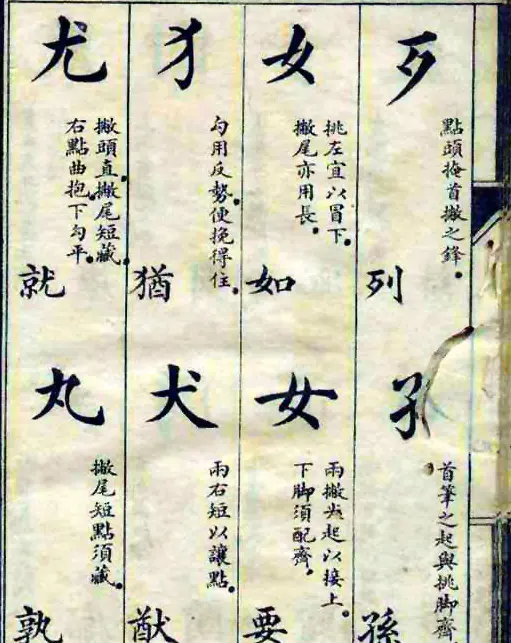 歹
點頭掩首撇之鋒
列
女
挑左宜以冒下
撇尾亦用長
如
犭
勾用反勢使挽得住
猶
尤
撇頭直撇尾短藏
右點曲抱下勾平
就
子
首筆之起與挑脚齊
孫
女
兩撇尖起以接上
下脚須配齊
要
犬
兩右短以讓點
猷
丸
撇尾短點須藏
孰